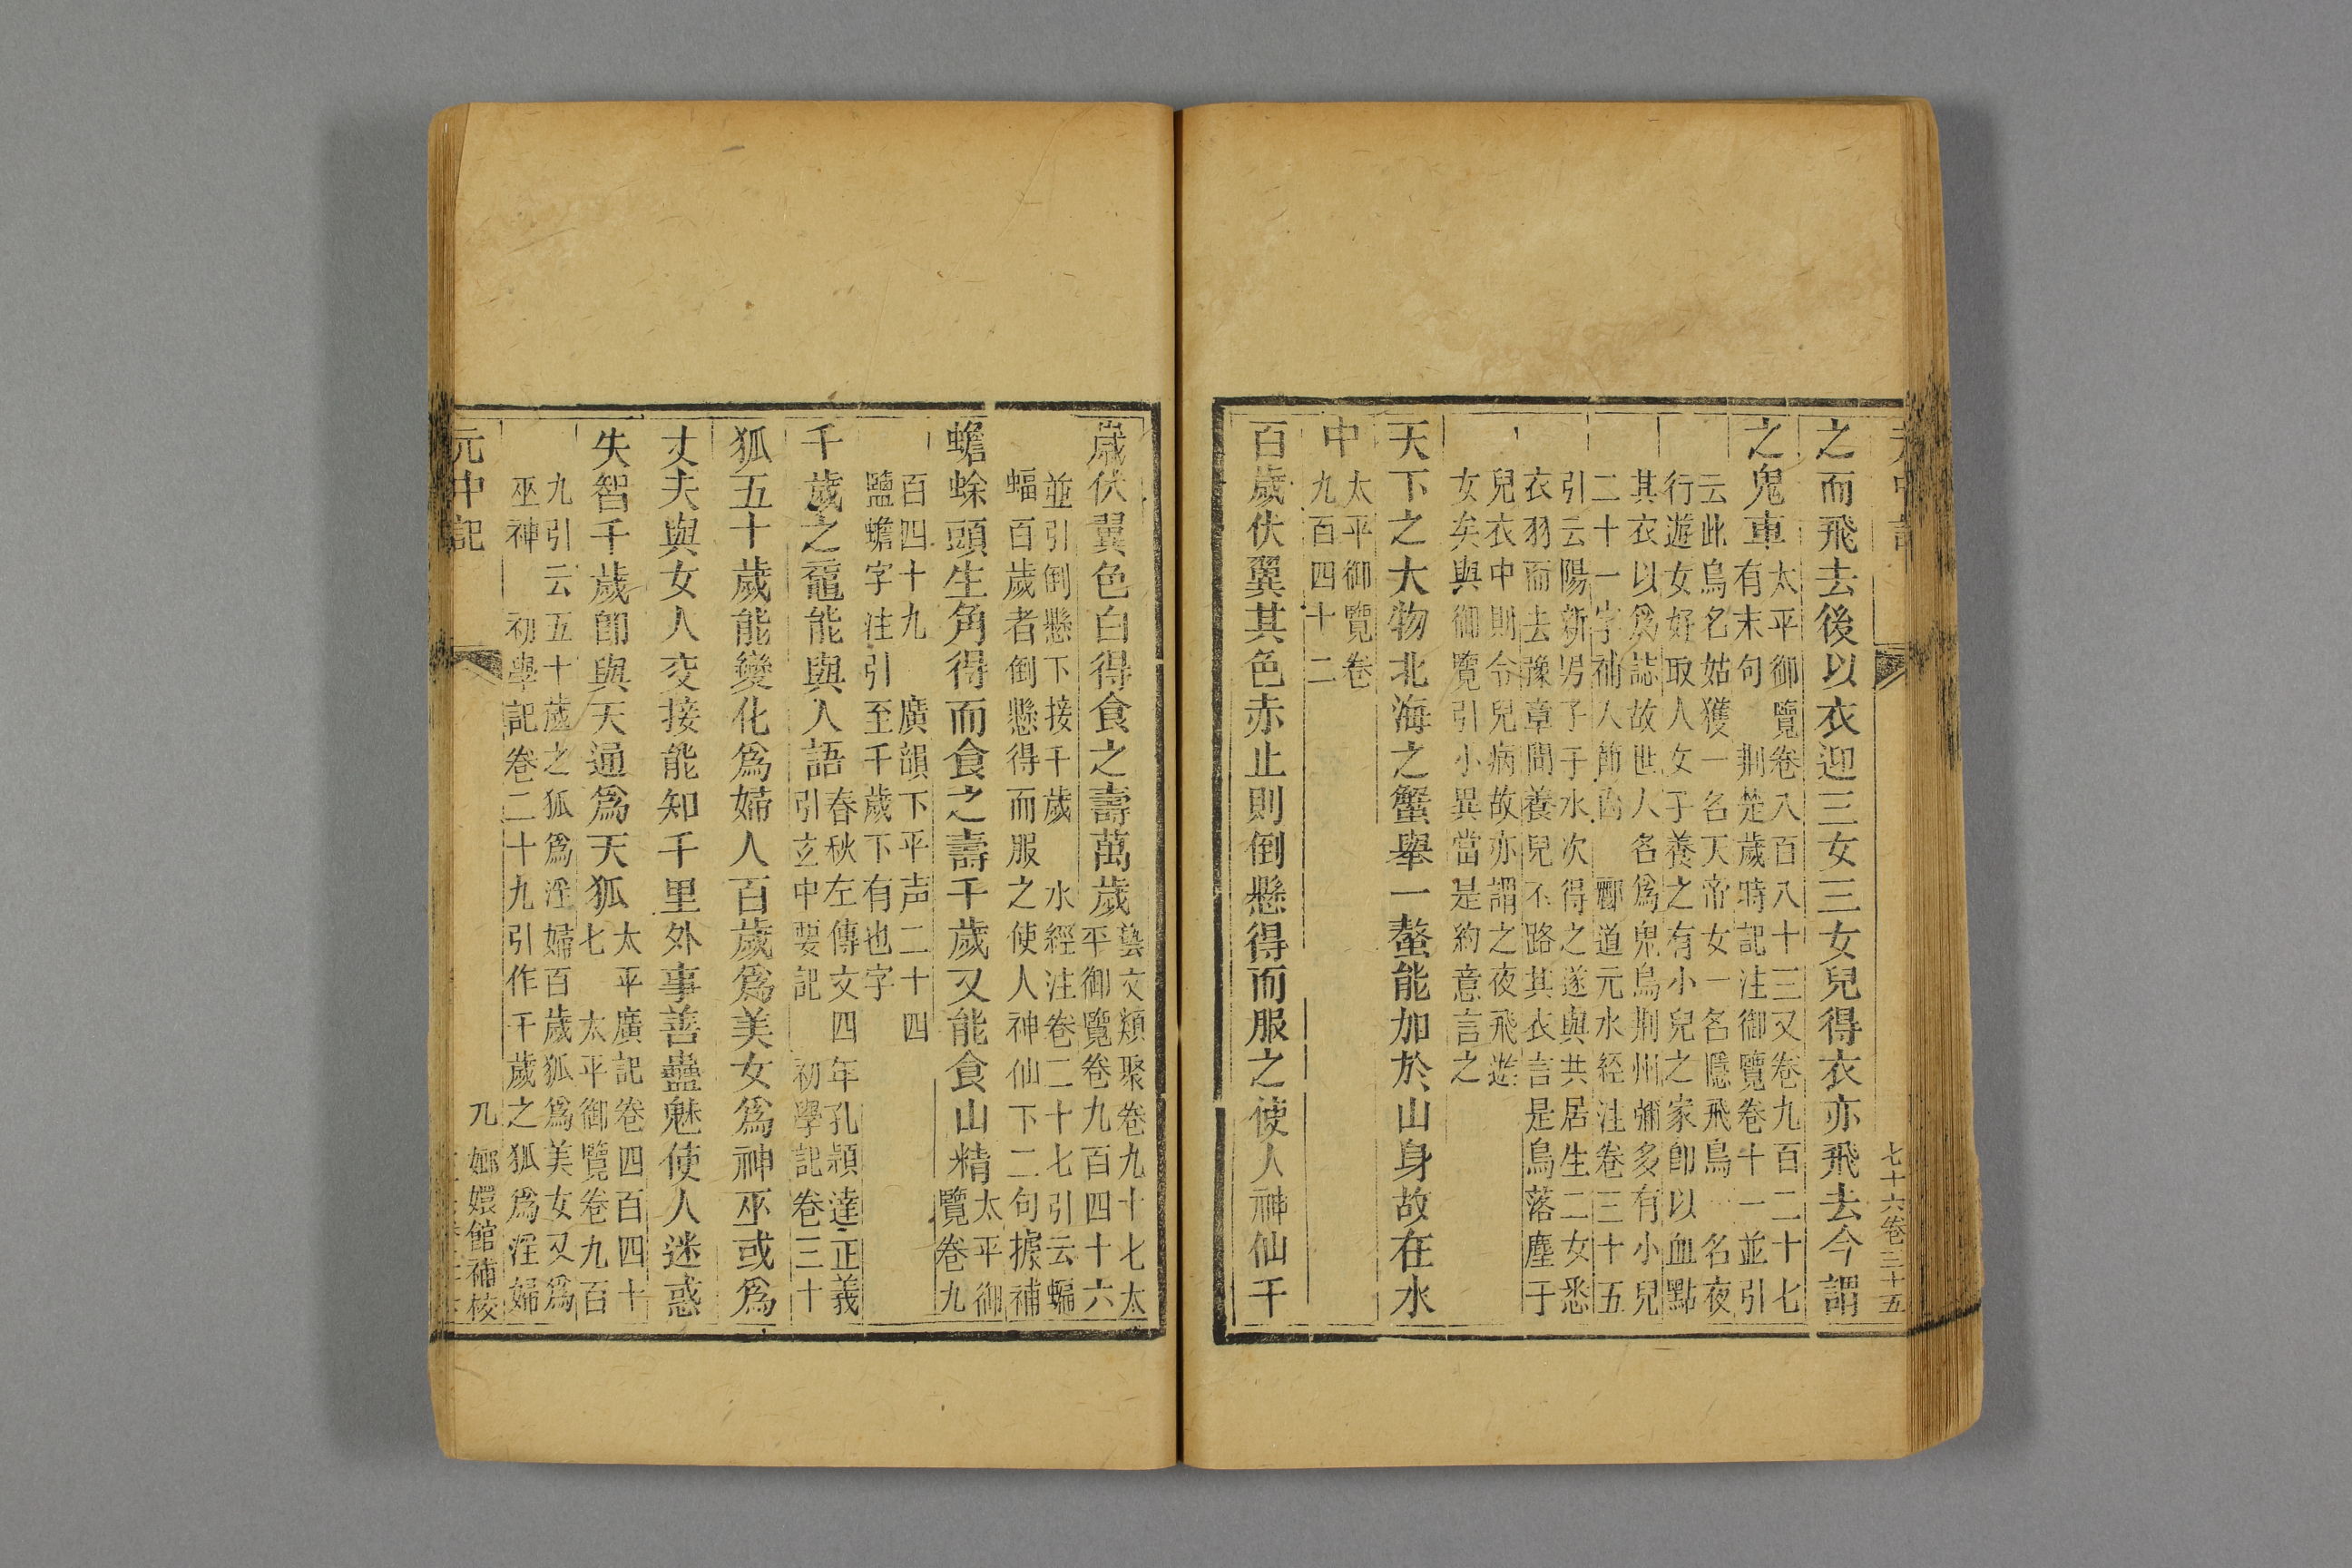 七十六卷三十五
之而飛去後以衣迎三女三女兒得衣亦飛去今謂
之鬼車太平御覽卷八百八十三又卷九百二十七
有末句 荆楚歲時記注御覽卷十一並引
云此鳥名姑獲一名天帝女一名隱飛鳥一名夜
行遊女好取人女子養之有小兒之家卽以血點
其衣以爲誌故世人名爲鬼鳥荆州彌多有小兒
二十一字補入節内 酈道元水経注卷三十五
引云陽新男子于水次得之遂與共居生二女悉
衣羽而去豫章間養兒不路其衣言是鳥落塵于
兒衣中則令兒病故亦謂之夜飛遊
女矣與御覽引小異當是約意言之
天下之大物北海之蟹舉一螯能加於山身故在水
中太平御覽卷
九百四十二
百歲伏翼其色赤止則倒懸得而服之使人神仙千
歲伏翼色白得食之壽萬歲藝文類聚卷九十七太
平御覽卷九百四十六
並引倒懸下接千歲 水經注卷二十七引云蝙
蝠百歲者倒懸得而服之使人神仙下二句據補
蟾蜍頭生角得而食之壽千歲又能食山精太平御
覽卷九
百四十九 廣韻下平声二十四
鹽蟾字注引至千歲下有也字
千歲之黿能與人語春秋左傳文四年孔穎達正義
引玄中要記 初學記卷三十
狐五十歲能變化爲婦人百歲爲美女爲神巫或爲
丈夫與女人交接能知千里外事善蠱魅使人迷惑
失智千歲卽與天通爲天狐太平廣記卷四百四十
七 太平御覽卷九百
九引云五十歲之狐爲淫婦百歲狐爲美女又爲
巫神 初學記卷二十九引作千歲之狐爲淫婦
元中記 九 嫏嬛館補校